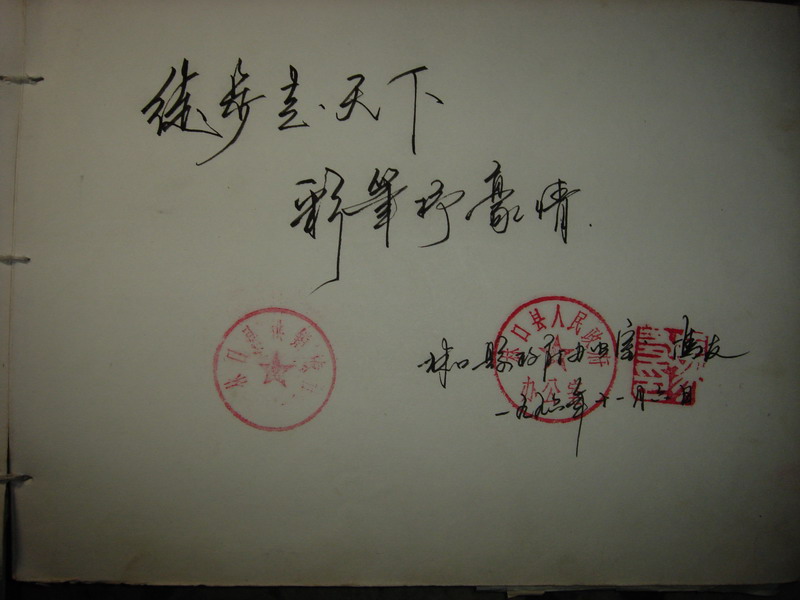 徒步走天下
彩笔抒豪情.
林口县人民政府
办公室
林口縣政府办公室
一九九六年十一月六日